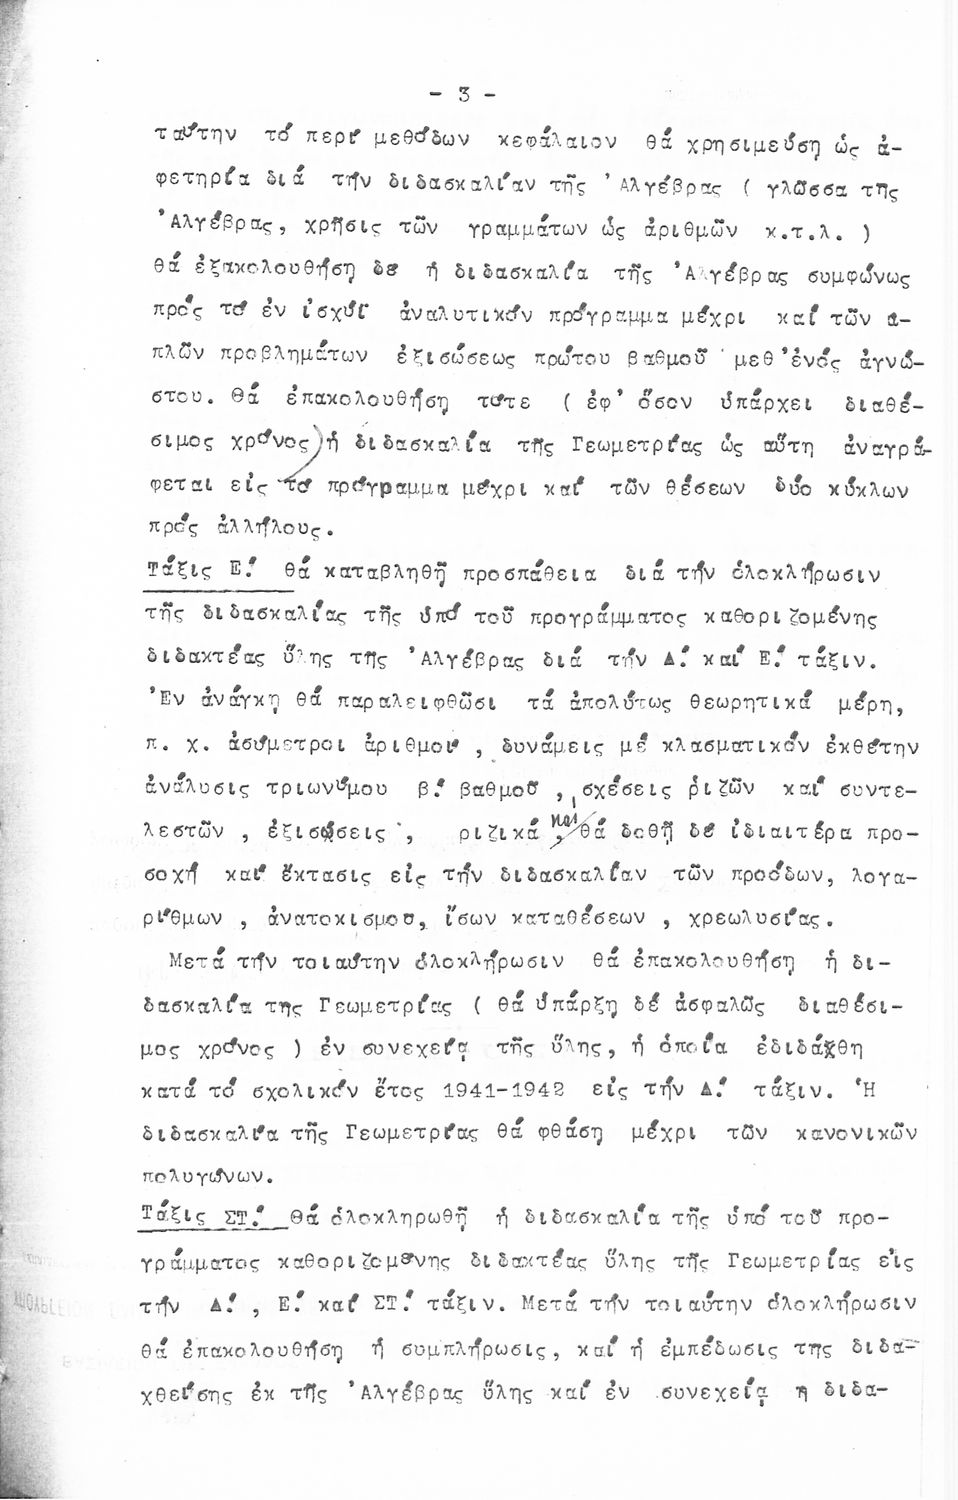 - 3 -
ταύτην τό περί μεθόδων κεφάλαιον θά χρησιμεύση ὡς ἀ-
φετηρία διά τήν διδασκαλίαν τῆς Ἀλγέβρας ( γλῶσσα τῆς
Ἀλγέβρας, χρῆσις τῶν γραμμάτων ὡς ἀριθμῶν κ.τ.λ. )
θά ἐξακολουθήση δέ ἡ διδασκαλία τῆς Ἀλγέβρας συμφώνως
πρός τό ἐν ἰσχύι ἀναλυτικόν πρόγραμμα μέχρι καί τῶν ἁ-
πλῶν προβλημάτων ἐξισώσεως πρώτου βαθμοῦ μεθ'ἑνός ἀγνώ-
στου. Θά ἐπακολουθήση τότε ( ἐφ' ὅσον ὑπάρχει διαθέ-
σιμος χρόνος) ἡ διδασκαλία τῆς Γεωμετρίας ὡς αὕτη ἀναγρά-
φεται εἰς τό πρόγραμμα μέχρι καί τῶν θέσεων δύο κύκλων
πρός ἀλλήλους.
Τάξις Ε.' θά καταβληθῆ προσπάθεια διά τήν ὁλοκλήρωσιν
τῆς διδασκαλίας τῆς ὑπό τοῦ προγράμματος καθοριζομένης
διδακτέας ὕλης τῆς Ἀλγέβρας διά τήν Δ.' καί Ε.' τάξιν.
Ἐν ἀνάγκη θά παραλειφθῶσι τά ἀπολύτως θεωρητικά μέρη,
π. χ. ἀσύμετροι ἀριθμοί , δυνάμεις μέ κλασματικόν ἐκθέτην
ἀνάλυσις τριωνύμου β.' βαθμοῦ , σχέσεις ῥιζῶν καί συντε-
λεστῶν , ἐξισώσεις , ριζικά , καί θά δοθῆ δέ ἰδιαιτέρα προ-
σοχή καί ἔκτασις εἰς τήν διδασκαλίαν τῶν προόδων, λογα-
ρίθμων , ἀνατοκισμοῦ, ἴσων καταθέσεων , χρεωλυσίας.
Μετά τήν τοιαύτην ὁλοκλήρωσιν θά ἐπακολουθήση ἡ δι-
δασκαλία της Γεωμετρίας ( θά ὑπάρξη δέ ἀσφαλῶς διαθέσι-
μος χρόνος ) ἐν συνεχεία τῆς ὕλης, ἡ ὁποία ἐδιδάχθη
κατά τό σχολικόν ἔτος 1941-1942 εἰς τήν Δ.' τάξιν. Ἡ
διδασκαλία τῆς Γεωμετρίας θά φθάση μέχρι τῶν κανονικῶν
πολυγώνων.
Τάξις ΣΤ.' Θά ὁλοκληρωθῆ ἡ διδασκαλία τῆς ὑπό τοῦ προ-
γράμματος καθοριζομένης διδακτέας ὕλης τῆς Γεωμετρίας εἰς
τήν Δ.' , Ε.' καί ΣΤ.' τάξιν. Μετά τήν τοιαύτην ὁλοκλήρωσιν
θά ἐπακολουθήση ἡ συμπλήρωσις, καί ἡ ἐμπέδωσις της διδα-
χθείσης ἐκ τῆς Ἀλγέβρας ὕλης καί ἐν συνεχεία η διδα-